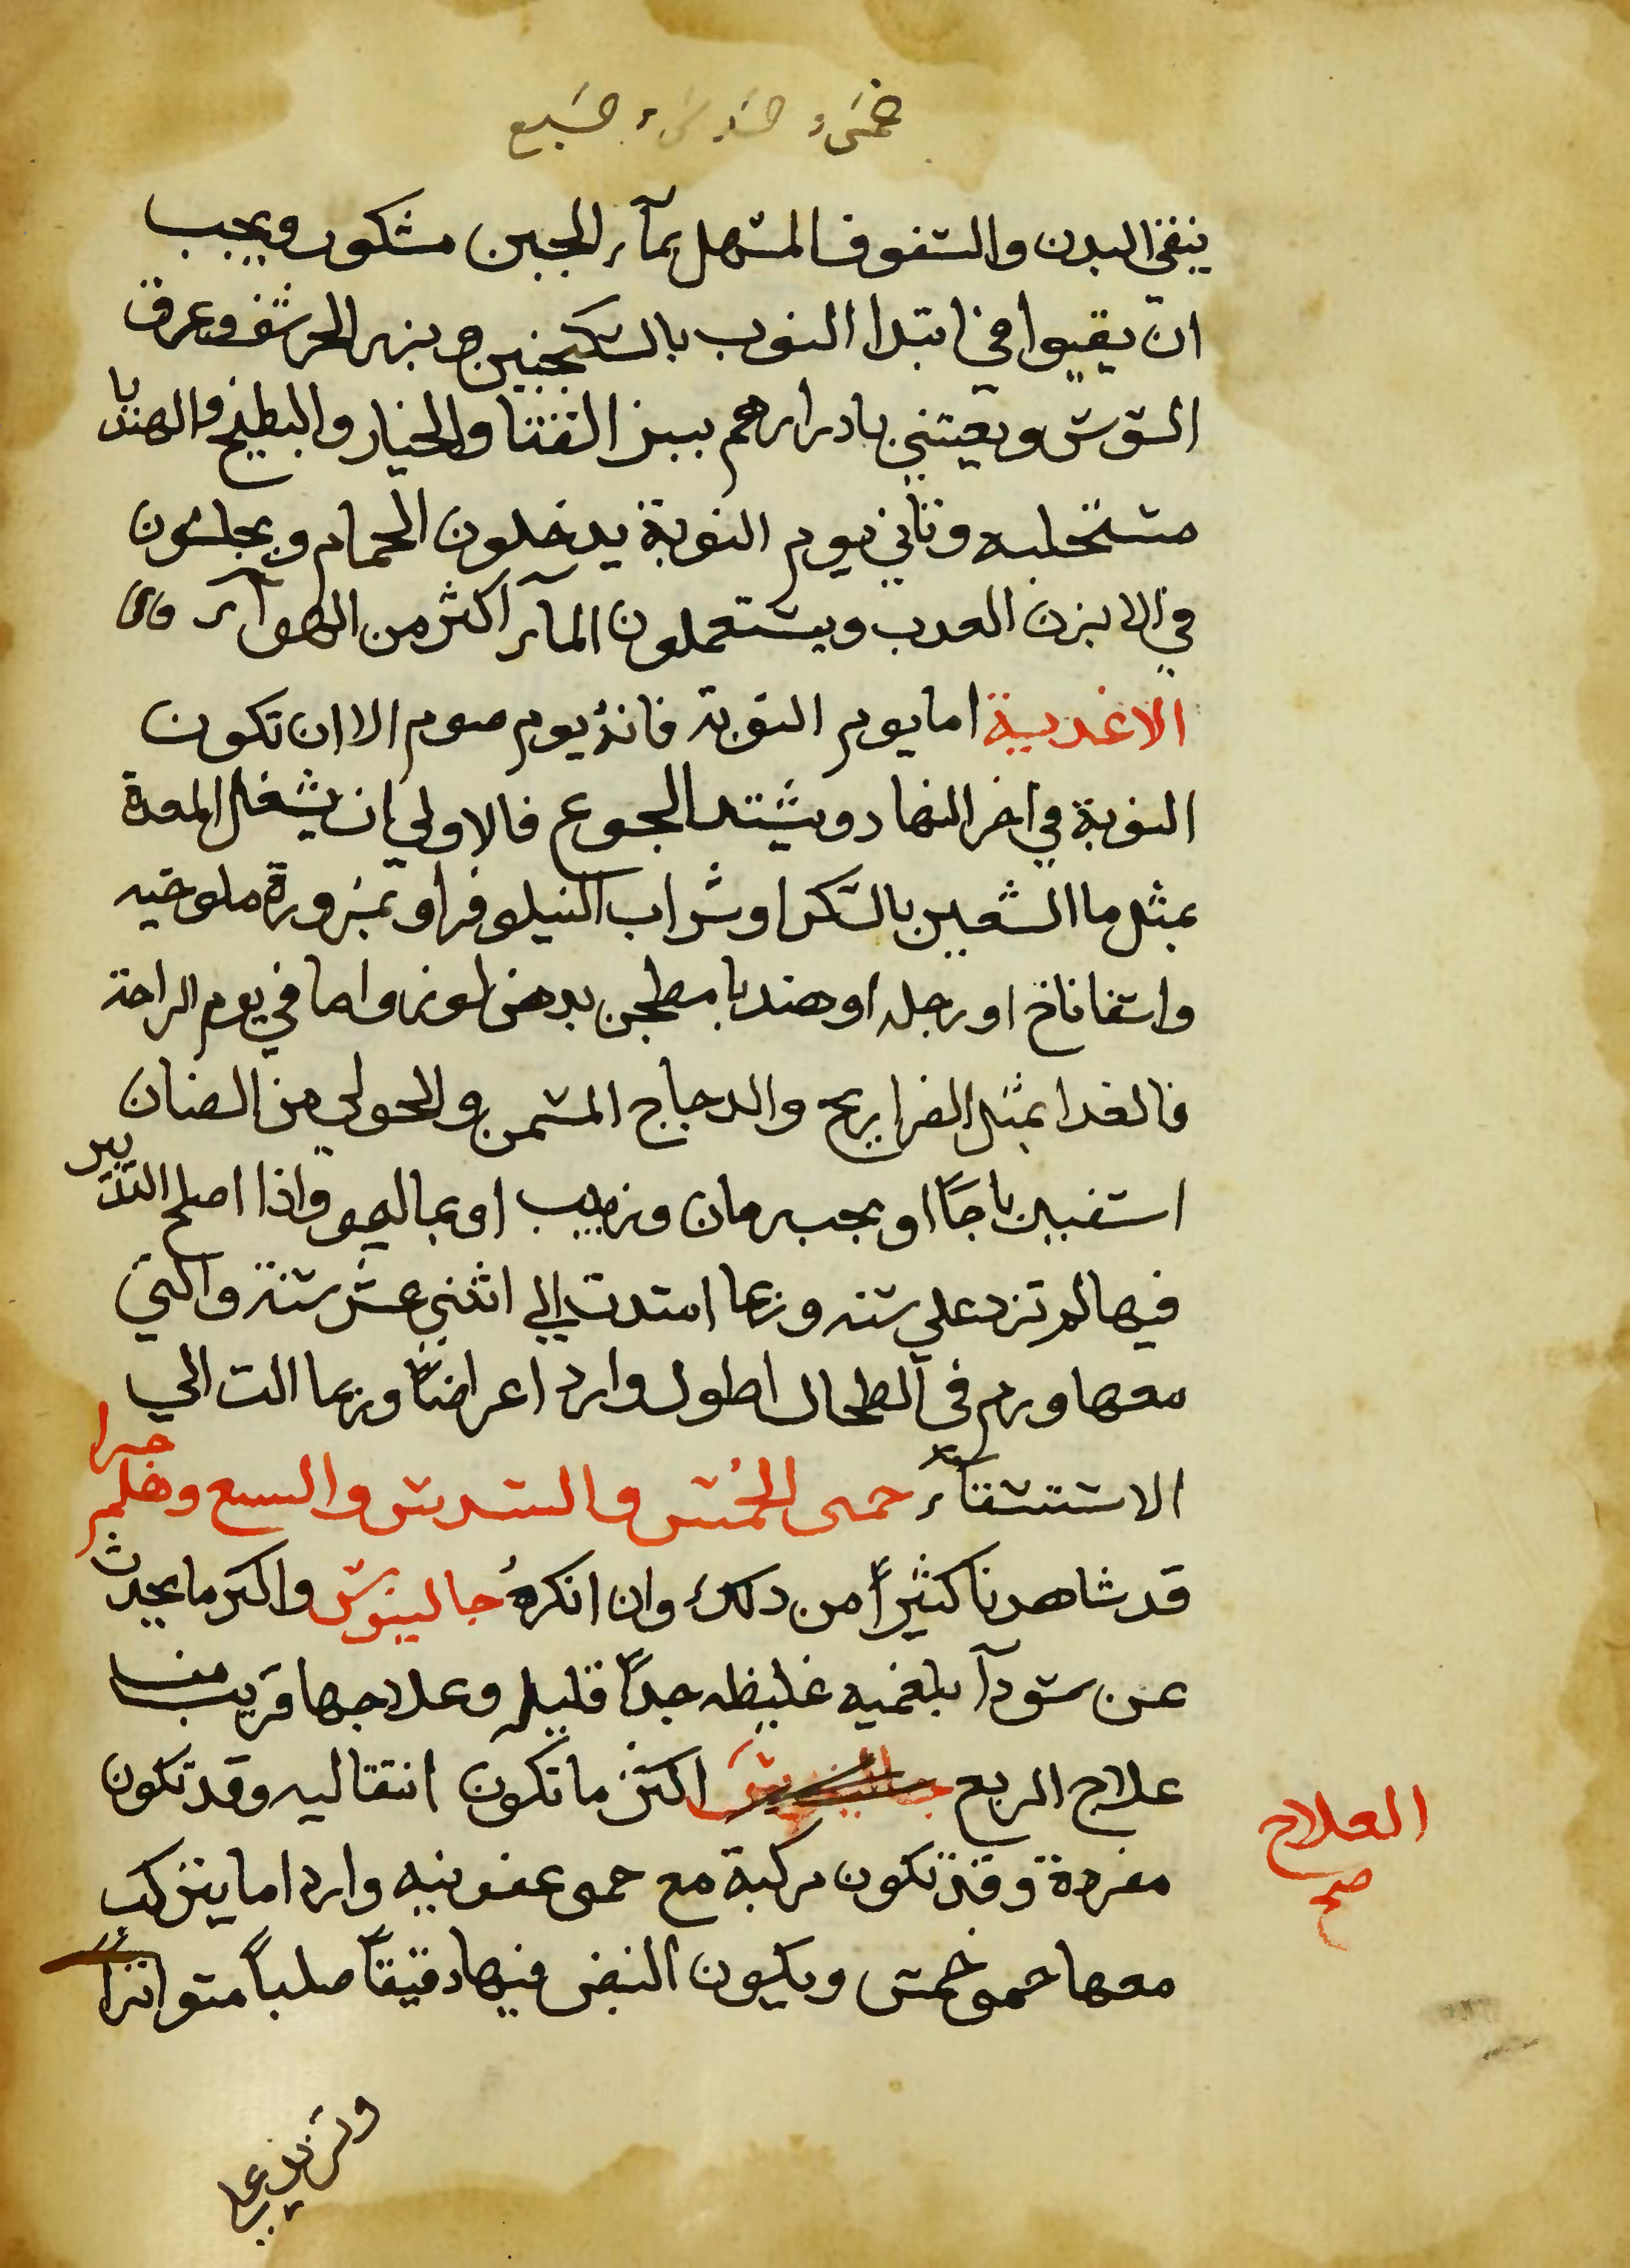 ينقي البدن والسفوف المسهل بمآء الجبن مشكور ويجب
ان يقيوا في ابتدا النوب بالسكنجبين وبزر الحرشف وعرق
السوس ويعتني بادرارهم ببزر القثا والخيار والبطيخ والهندبا
مستحلبه وثاني يوم النوبة يدخلون الحمام ويجلسون
في الابزن العدب ويستعملون المآء اكثر من الهوآء واما
الاغدية اما يوم النوبة فانه يوم صوم الا ان تكون
النوبة في اخر النهار ويشتد الجوع فالاولي ان يشغل المعدة
بمثل ما الشعير بالسكر او شراب النيلوفر او بمزورة ملوخيه
واسفاناخ او رجله او هندبا مطجن بدهن لوز واما في يوم الراحة
فالغدا بمثل الفراريج والدجاج المسمن والحولي من الضان
اسفيدباجاً او بحب رمان وزبيب او بماليمو واذا اصلح التدبير
فيها لم تزد علي سنه وربما امتدت الي اثني عشر سنة والتي
معها ورم في الطحال اطول واردا اعراضاً وربما الت الي
الاستسقآء حمى الخمس والسدس والسبع وهلم جرا
قد شاهدنا كثيراً من دلك وان انكره جالينوس واكثر ما يحدث
عن سودآ بلغميه غليظه جداً قليله وعلاجها قريب من
علاج الربع جالينوس اكثر ما تكون انتقاليه وقد تكون
مفردة وقد تكون مركبة مع حمى عفونيه واردا ما يتركب
معها حمى خمس ويكون النبض فيها دقيقاً صلباً متواتراً
العلاج
صح